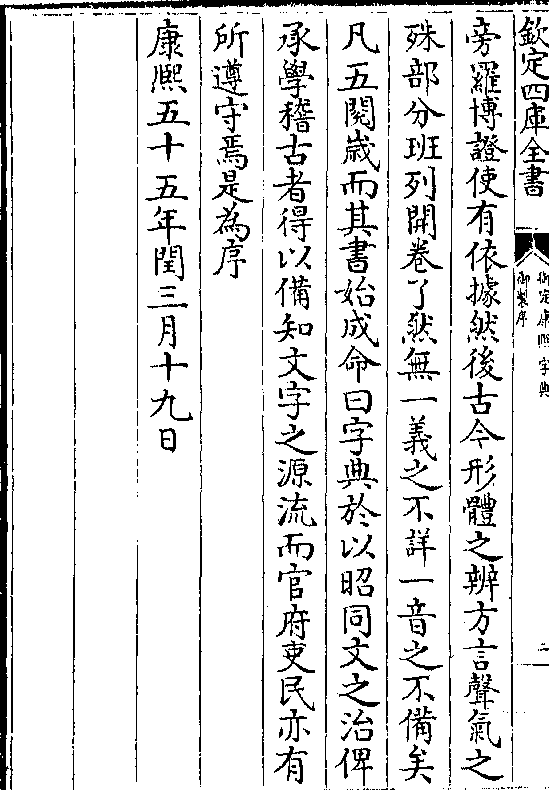 欽定四庫全書
御定康熙字典
御製序
二
旁羅博證使有依據然後古今形體之辨方言聲氣之
殊部分班列開卷了然無一義之不詳一音之不備矣
凡五閱嵗而其書始成命曰字典於以昭同文之治俾
承學稽古者得以備知文字之源流而官府吏民亦有
所遵守焉是為序
康熙五十五年閏三月十九日